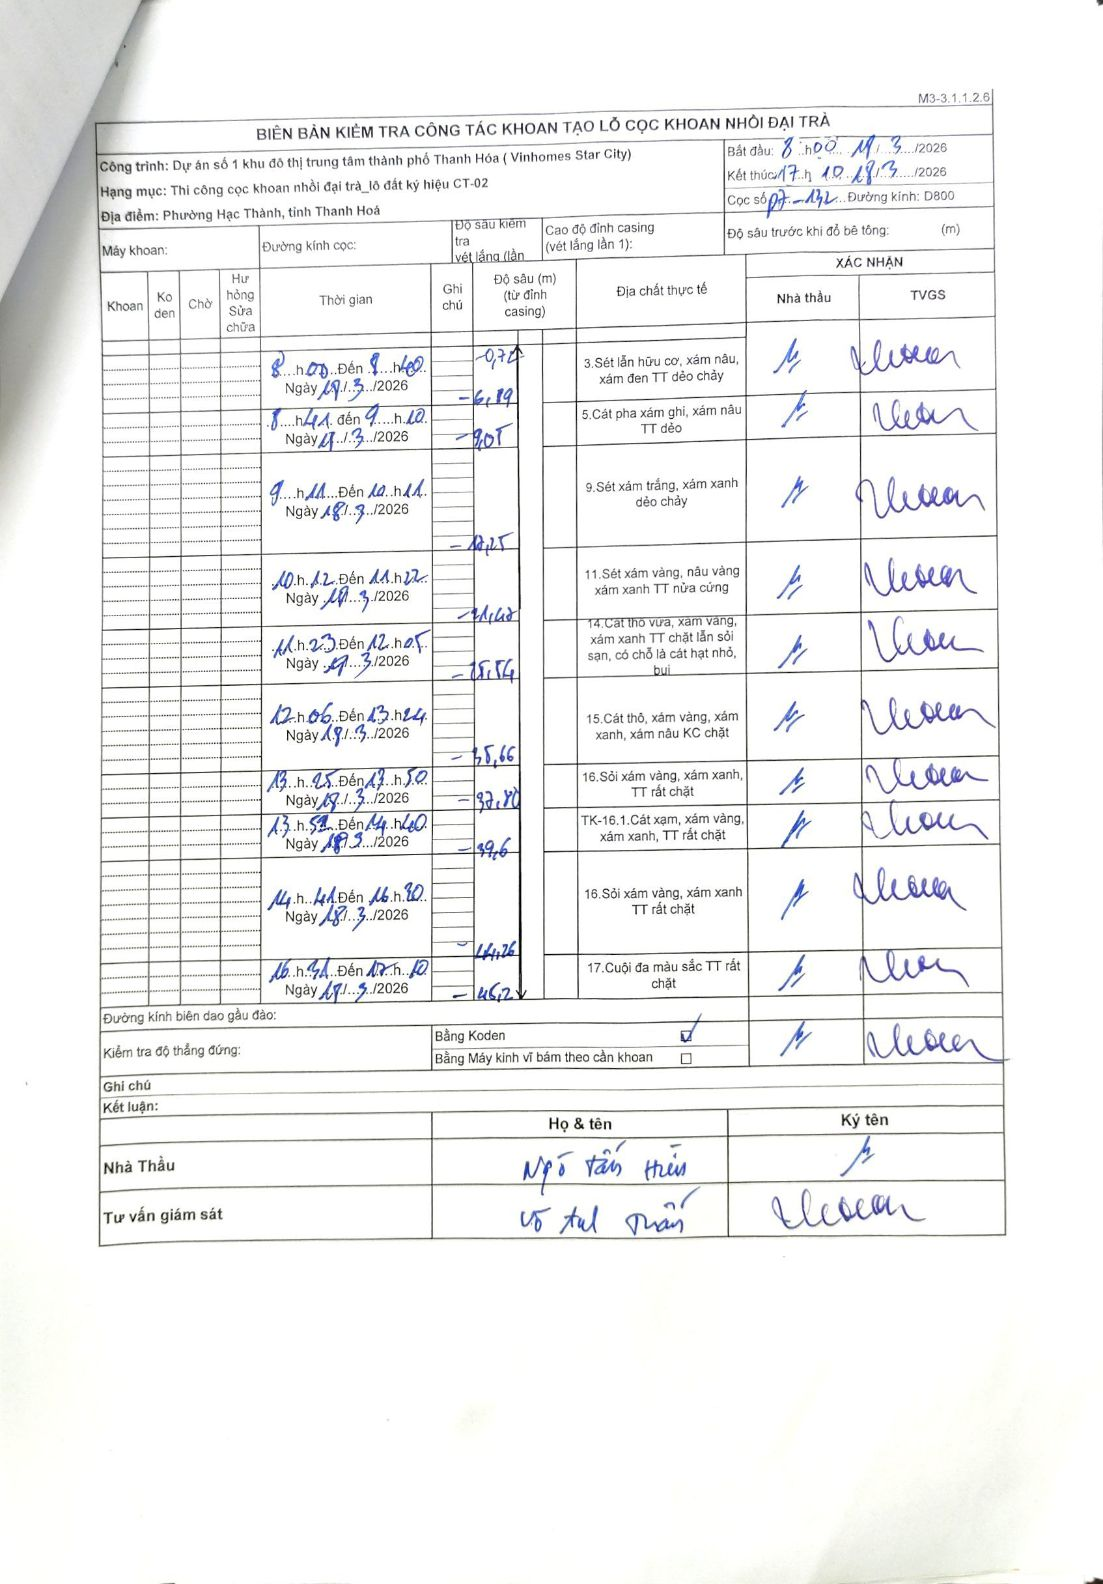 M3-3.1.1.2.6
BIÊN BẢN KIỂM TRA CÔNG TÁC KHOAN TẠO LỖ CỌC KHOAN NHỒI ĐẠI TRÀ
Công trình: Dự án số 1 khu đô thị trung tâm thành phố Thanh Hóa ( Vinhomes Star City)
Hạng mục: Thi công cọc khoan nhồi đại trà_lô đất ký hiệu CT-02
Địa điểm: Phường Hạc Thành, tỉnh Thanh Hoá
Bắt đầu: 8 h00 18/3/2026
Kết thúc: 17 h 10 18/3/2026
Cọc số P7-132 Đường kính: D800
Máy khoan:
Đường kính cọc:
Độ sâu kiểm tra
vét lắng (lần
Cao độ đỉnh casing
(vét lắng lần 1):
Độ sâu trước khi đổ bê tông: (m)
Khoan
Ko den
Chờ
Hư hỏng Sửa chữa
Thời gian
Ghi chú
Độ sâu (m)
(từ đỉnh casing)
Địa chất thực tế
XÁC NHẬN
Nhà thầu
TVGS
8 h 00 Đến 8 h 40
Ngày 18/3/2026
-6,89
3.Sét lẫn hữu cơ, xám nâu,
xám đen TT dẻo chảy
8 h 41 đến 9 h 10
Ngày 18/3/2026
-9,05
5.Cát pha xám ghi, xám nâu
TT dẻo
9 h 11 Đến 10 h 11
Ngày 18/3/2026
-17,25
9.Sét xám trắng, xám xanh
dẻo chảy
10 h 12 Đến 11 h 22
Ngày 18/3/2026
11.Sét xám vàng, nâu vàng
xám xanh TT nửa cứng
11 h 23 Đến 12 h 05
Ngày 18/3/2026
-25,54
14.Cát thô vừa, xám vàng,
xám xanh TT chặt lẫn sỏi
sạn, có chỗ là cát hạt nhỏ,
bụi
12 h 06 Đến 13 h 24
Ngày 18/3/2026
-35,66
15.Cát thô, xám vàng, xám
xanh, xám nâu KC chặt
13 h 25 Đến 13 h 50
Ngày 18/3/2026
-37,80
16.Sỏi xám vàng, xám xanh,
TT rất chặt
13 h 51 Đến 14 h 40
Ngày 18/3/2026
-39,6
TK-16.1.Cát xạm, xám vàng,
xám xanh, TT rất chặt
14 h 41 Đến 16 h 30
Ngày 18/3/2026
-44,26
16.Sỏi xám vàng, xám xanh
TT rất chặt
16 h 31 Đến 17 h 10
Ngày 18/3/2026
-45,2
17.Cuội đa màu sắc TT rất
chặt
Đường kính biên dao gầu đào:
Kiểm tra độ thẳng đứng:
Bằng Koden
Bằng Máy kinh vĩ bám theo cần khoan
Ghi chú
Kết luận:
Họ & tên
Ký tên
Nhà Thầu
Ngô Tấn Hiền
Tư vấn giám sát